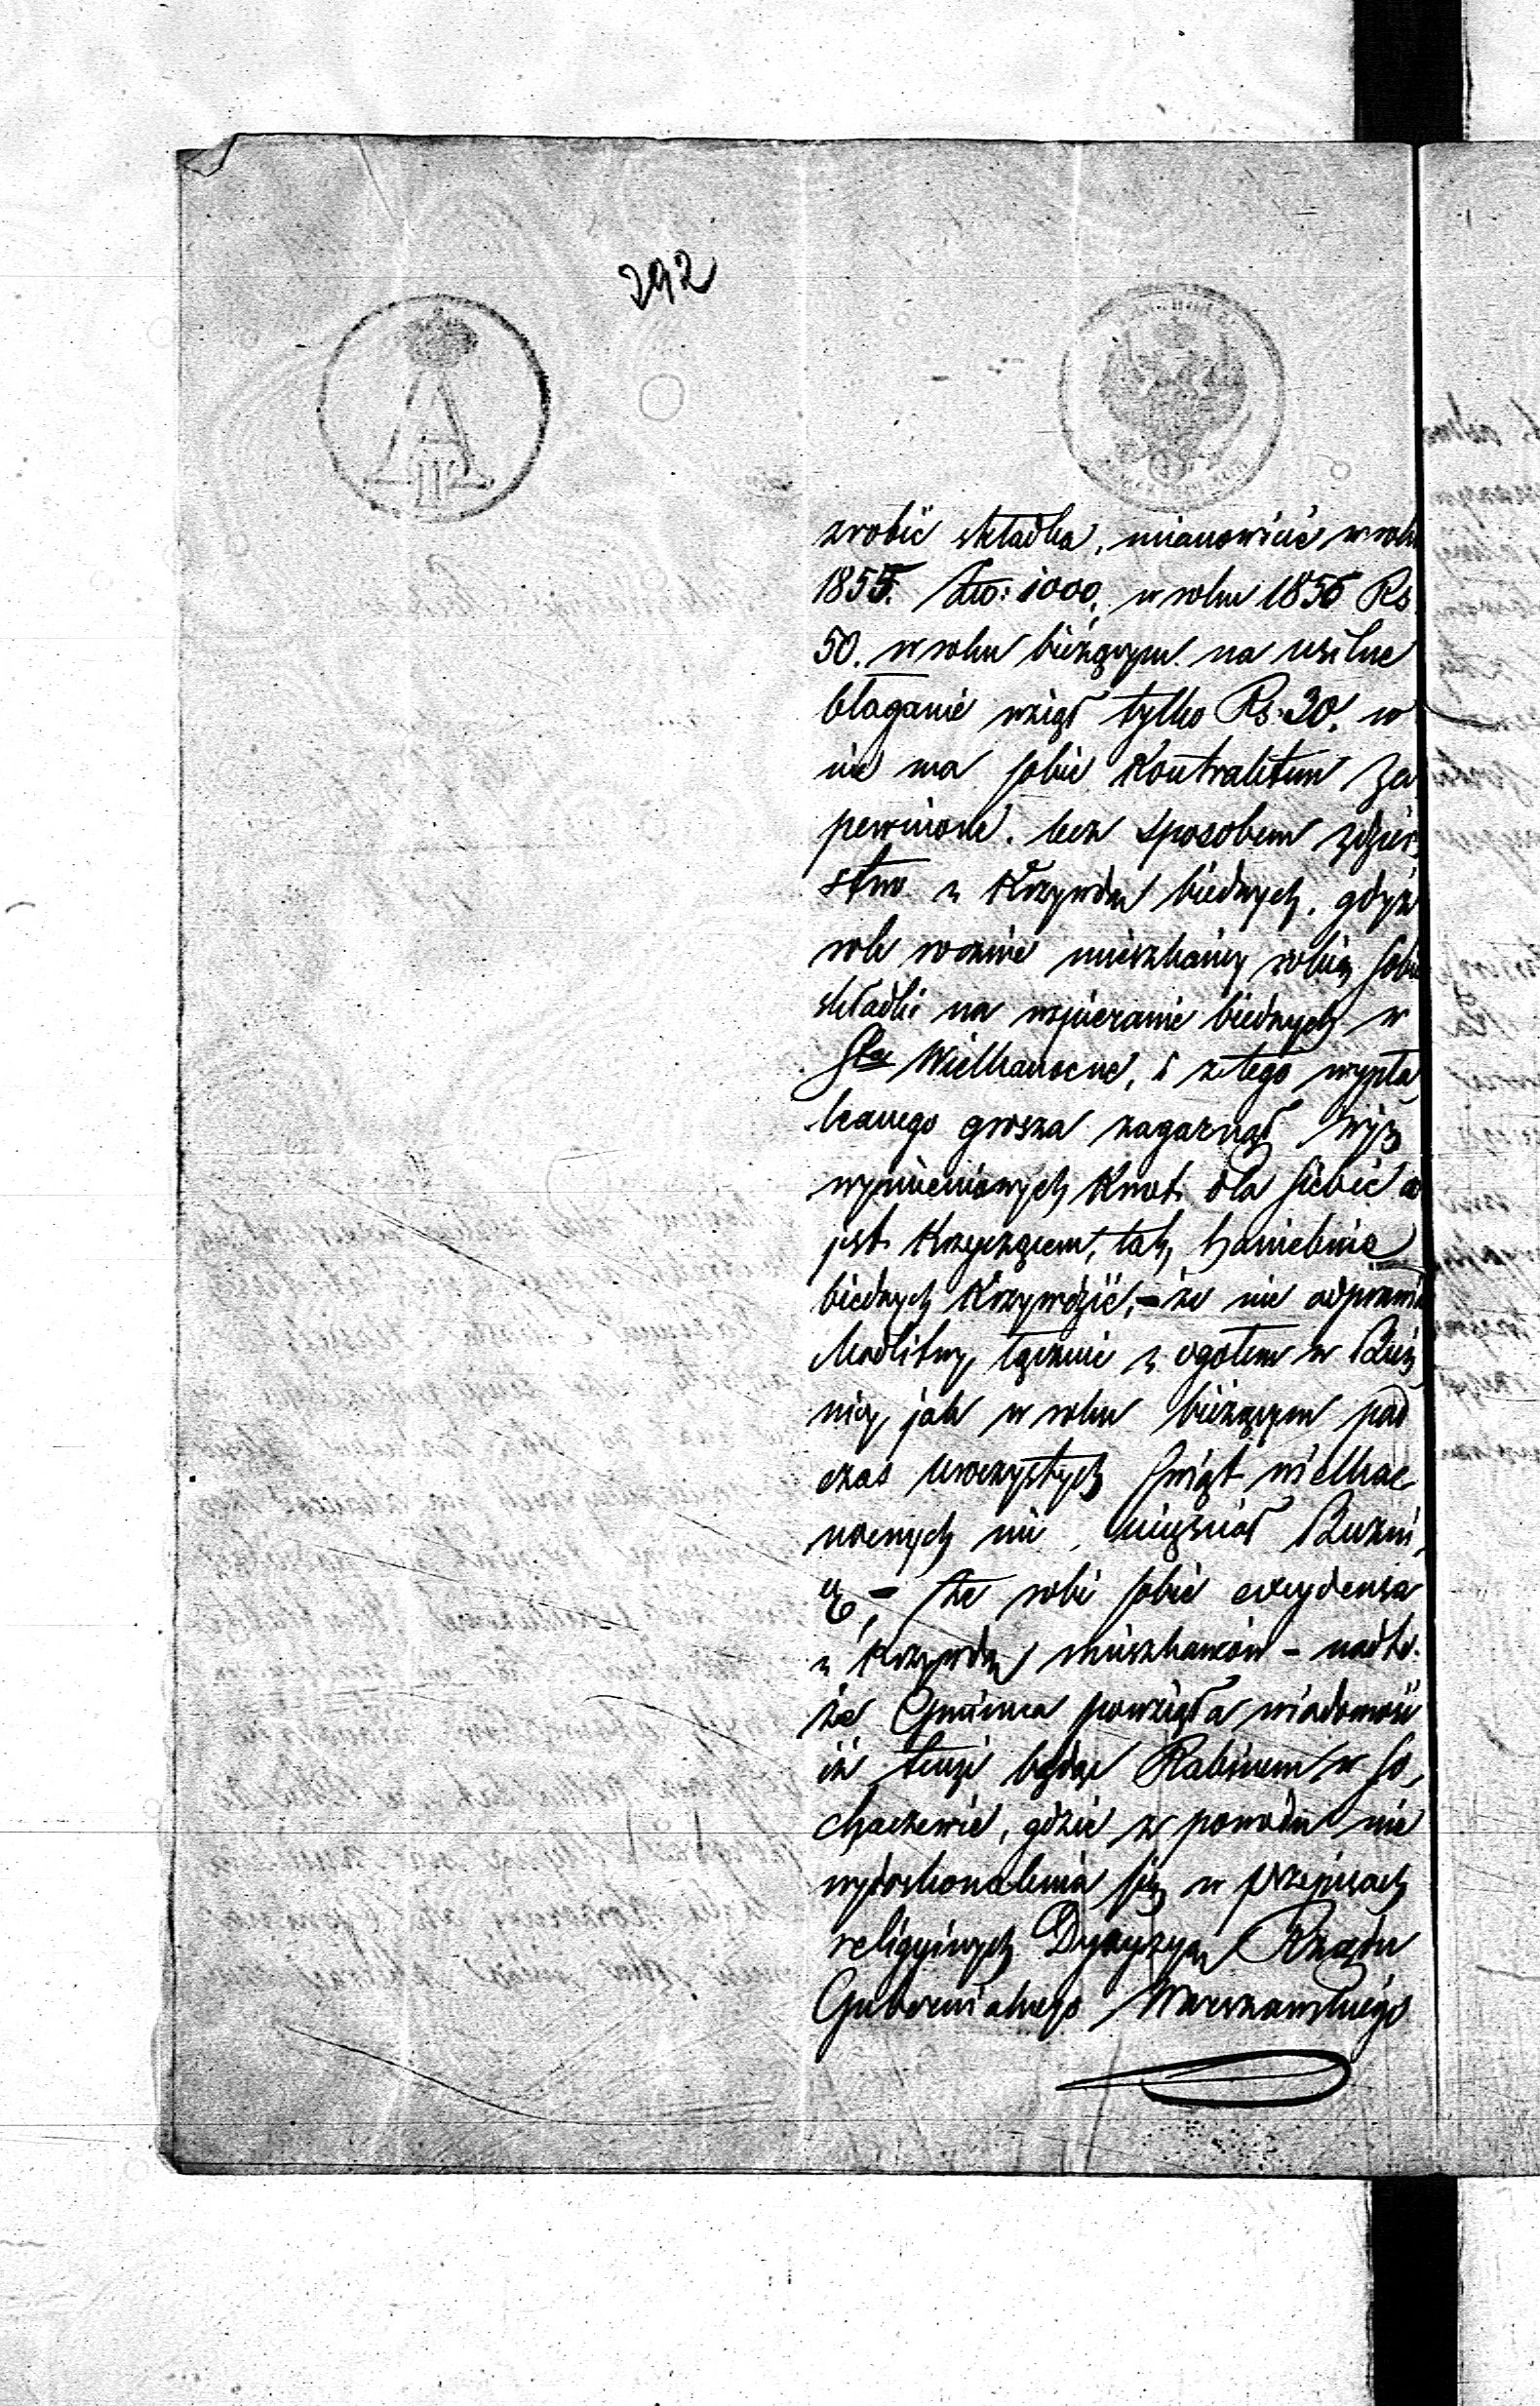 292
zrobić składka, mianowicie w roku
1855. Zło: 1000, w roku 1856 Rs.
50. w roku bieżącym na usilne
błaganie wziął tylko Rs. 30. w
nie ma sobie Kontraktem Za
pewnione. lecz sposobem zdzier
stwa z Krzywdą biednych. gdyż
rok rocznie mieszkańcy robią sobie
składki na wspieranie biednych w
Sta Wielkanocne, i z tego wypła
kanego grosza zagarnął wyż
wymienionych Kwot. dla siebie a
jest Krzyczącem, tak haniebnie
biednych Krzywdzić, - że nie odprawia
Modlitwy łącznie z ogółem w Buż
nicy, jak w roku bieżącym pod
czas uroczystych Świąt wielka
nocnych nie Bużni
cę, - że robi sobie
z Krzywdą mieszkańców - nadto.
że Gmina powzięła wiadomość
iż tenże będąc Rabinem w So,
chaczewie, gdzie z powodu nie
wydoskonalenia się w przepisach
religijnych Decyzyą Rządu
Gubernialnego Warszawskiego